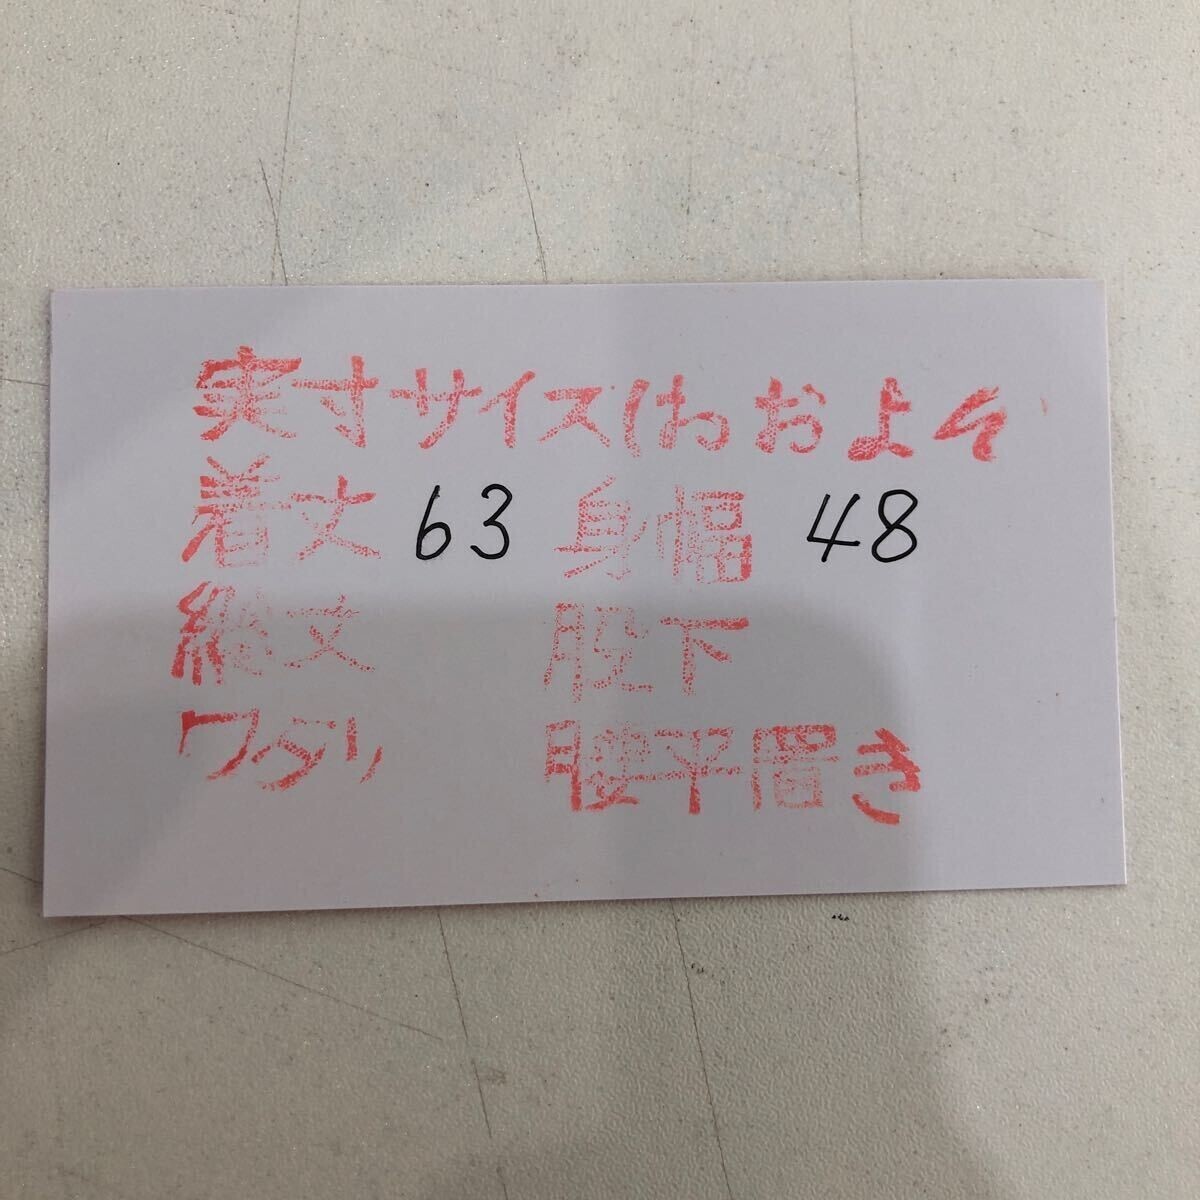 実寸サイズ(おおよそ)
着丈 63 身幅 48
縦丈 股下
ワタリ 腰平置き